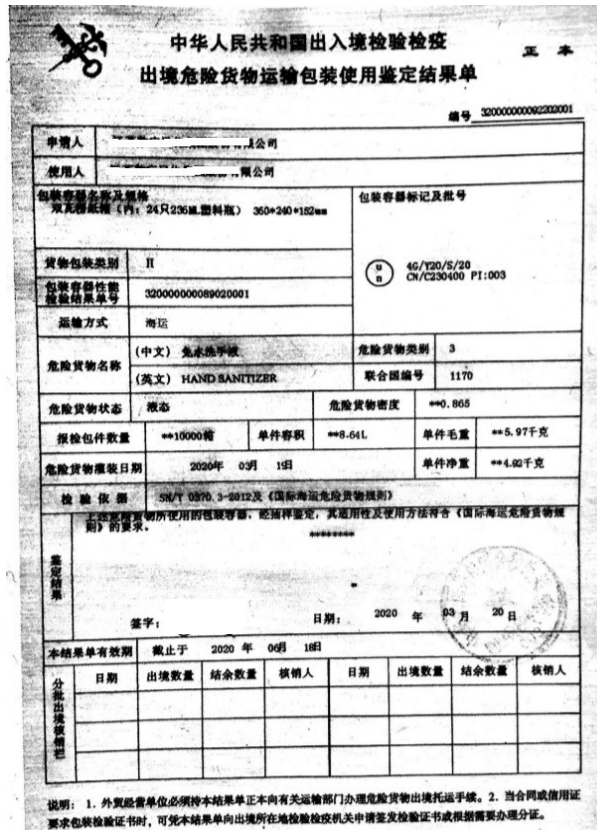 中华人民共和国出入境检验检疫
正 本
出境危险货物运输包装使用鉴定结果单
编号 320000000092202001
申请人 公司
使用人 限公司
包装容器名称及规格
双瓦楞纸箱（内：24只236ML塑料瓶） 360*240*152mm
包装容器标记及批号
un 4G/Y20/S/20
CN/C230400 PI:003
货物包装类别 II
包装容器性能检验结果单号 320000000089020001
运输方式 海运
危险货物名称 （中文）免水洗手液 危险货物类别 3
（英文）HAND SANITIZER 联合国编号 1170
危险货物状态 液态 危险货物密度 **0.865
报检包件数量 **10000箱 单件容积 **8.64L 单件毛重 **5.97千克
危险货物灌装日期 2020年 03月 19日 单件净重 **4.92千克
检 验 依 据 SN/T 0370.3-2012及《国际海运危险货物规则》
鉴定结果
上述危险货物所使用的包装容器，经抽样鉴定，其适用性及使用方法符合《国际海运危险货物规
则》的要求。
********
签字： 日期： 2020 年 03 月 20 日
本结果单有效期 截止于 2020 年 06月 18日
分批出境核销栏
日期 出境数量 结余数量 核销人 日期 出境数量 结余数量 核销人
说明： 1．外贸经营单位必须持本结果单正本向有关运输部门办理危险货物出境托运手续。2．当合同或信用证
要求包装检验证书时，可凭本结果单向出境所在地检验检疫机关申请签发检验证书或根据需要办理分证。